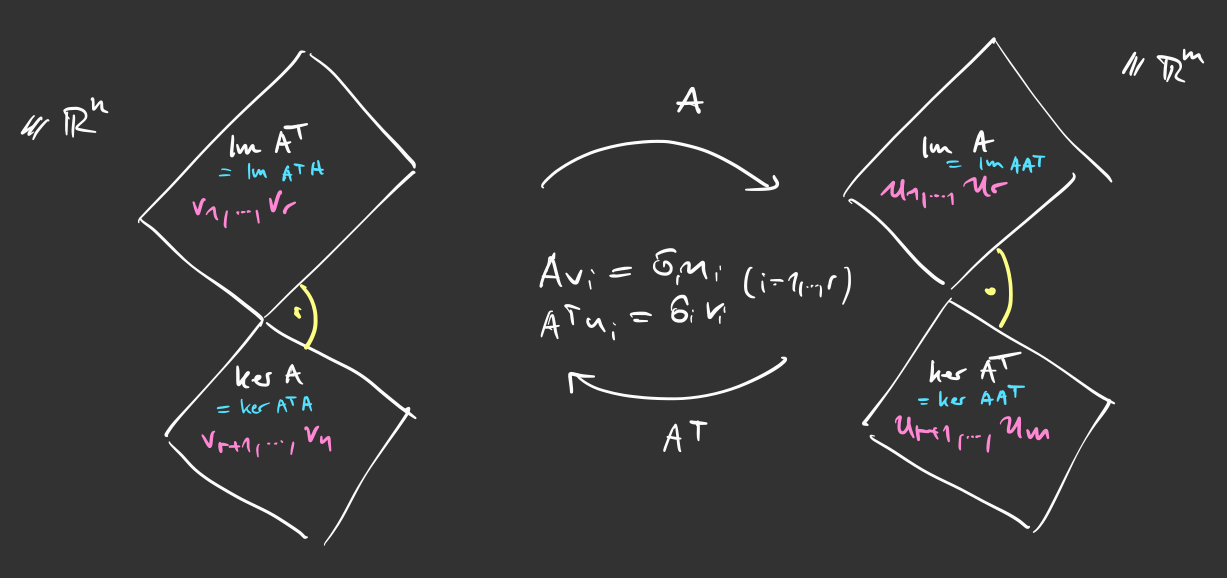 ℝⁿ
Im Aᵀ
= Im AᵀA
v₁,...,vᵣ
ker A
= ker AᵀA
vᵣ₊₁,...,vₙ
A
Avᵢ = σᵢuᵢ (i=1,...,r)
Aᵀuᵢ = σᵢvᵢ
Aᵀ
ℝᵐ
Im A
= Im AAᵀ
u₁,...,uᵣ
ker Aᵀ
= ker AAᵀ
uᵣ₊₁,...,uₘ